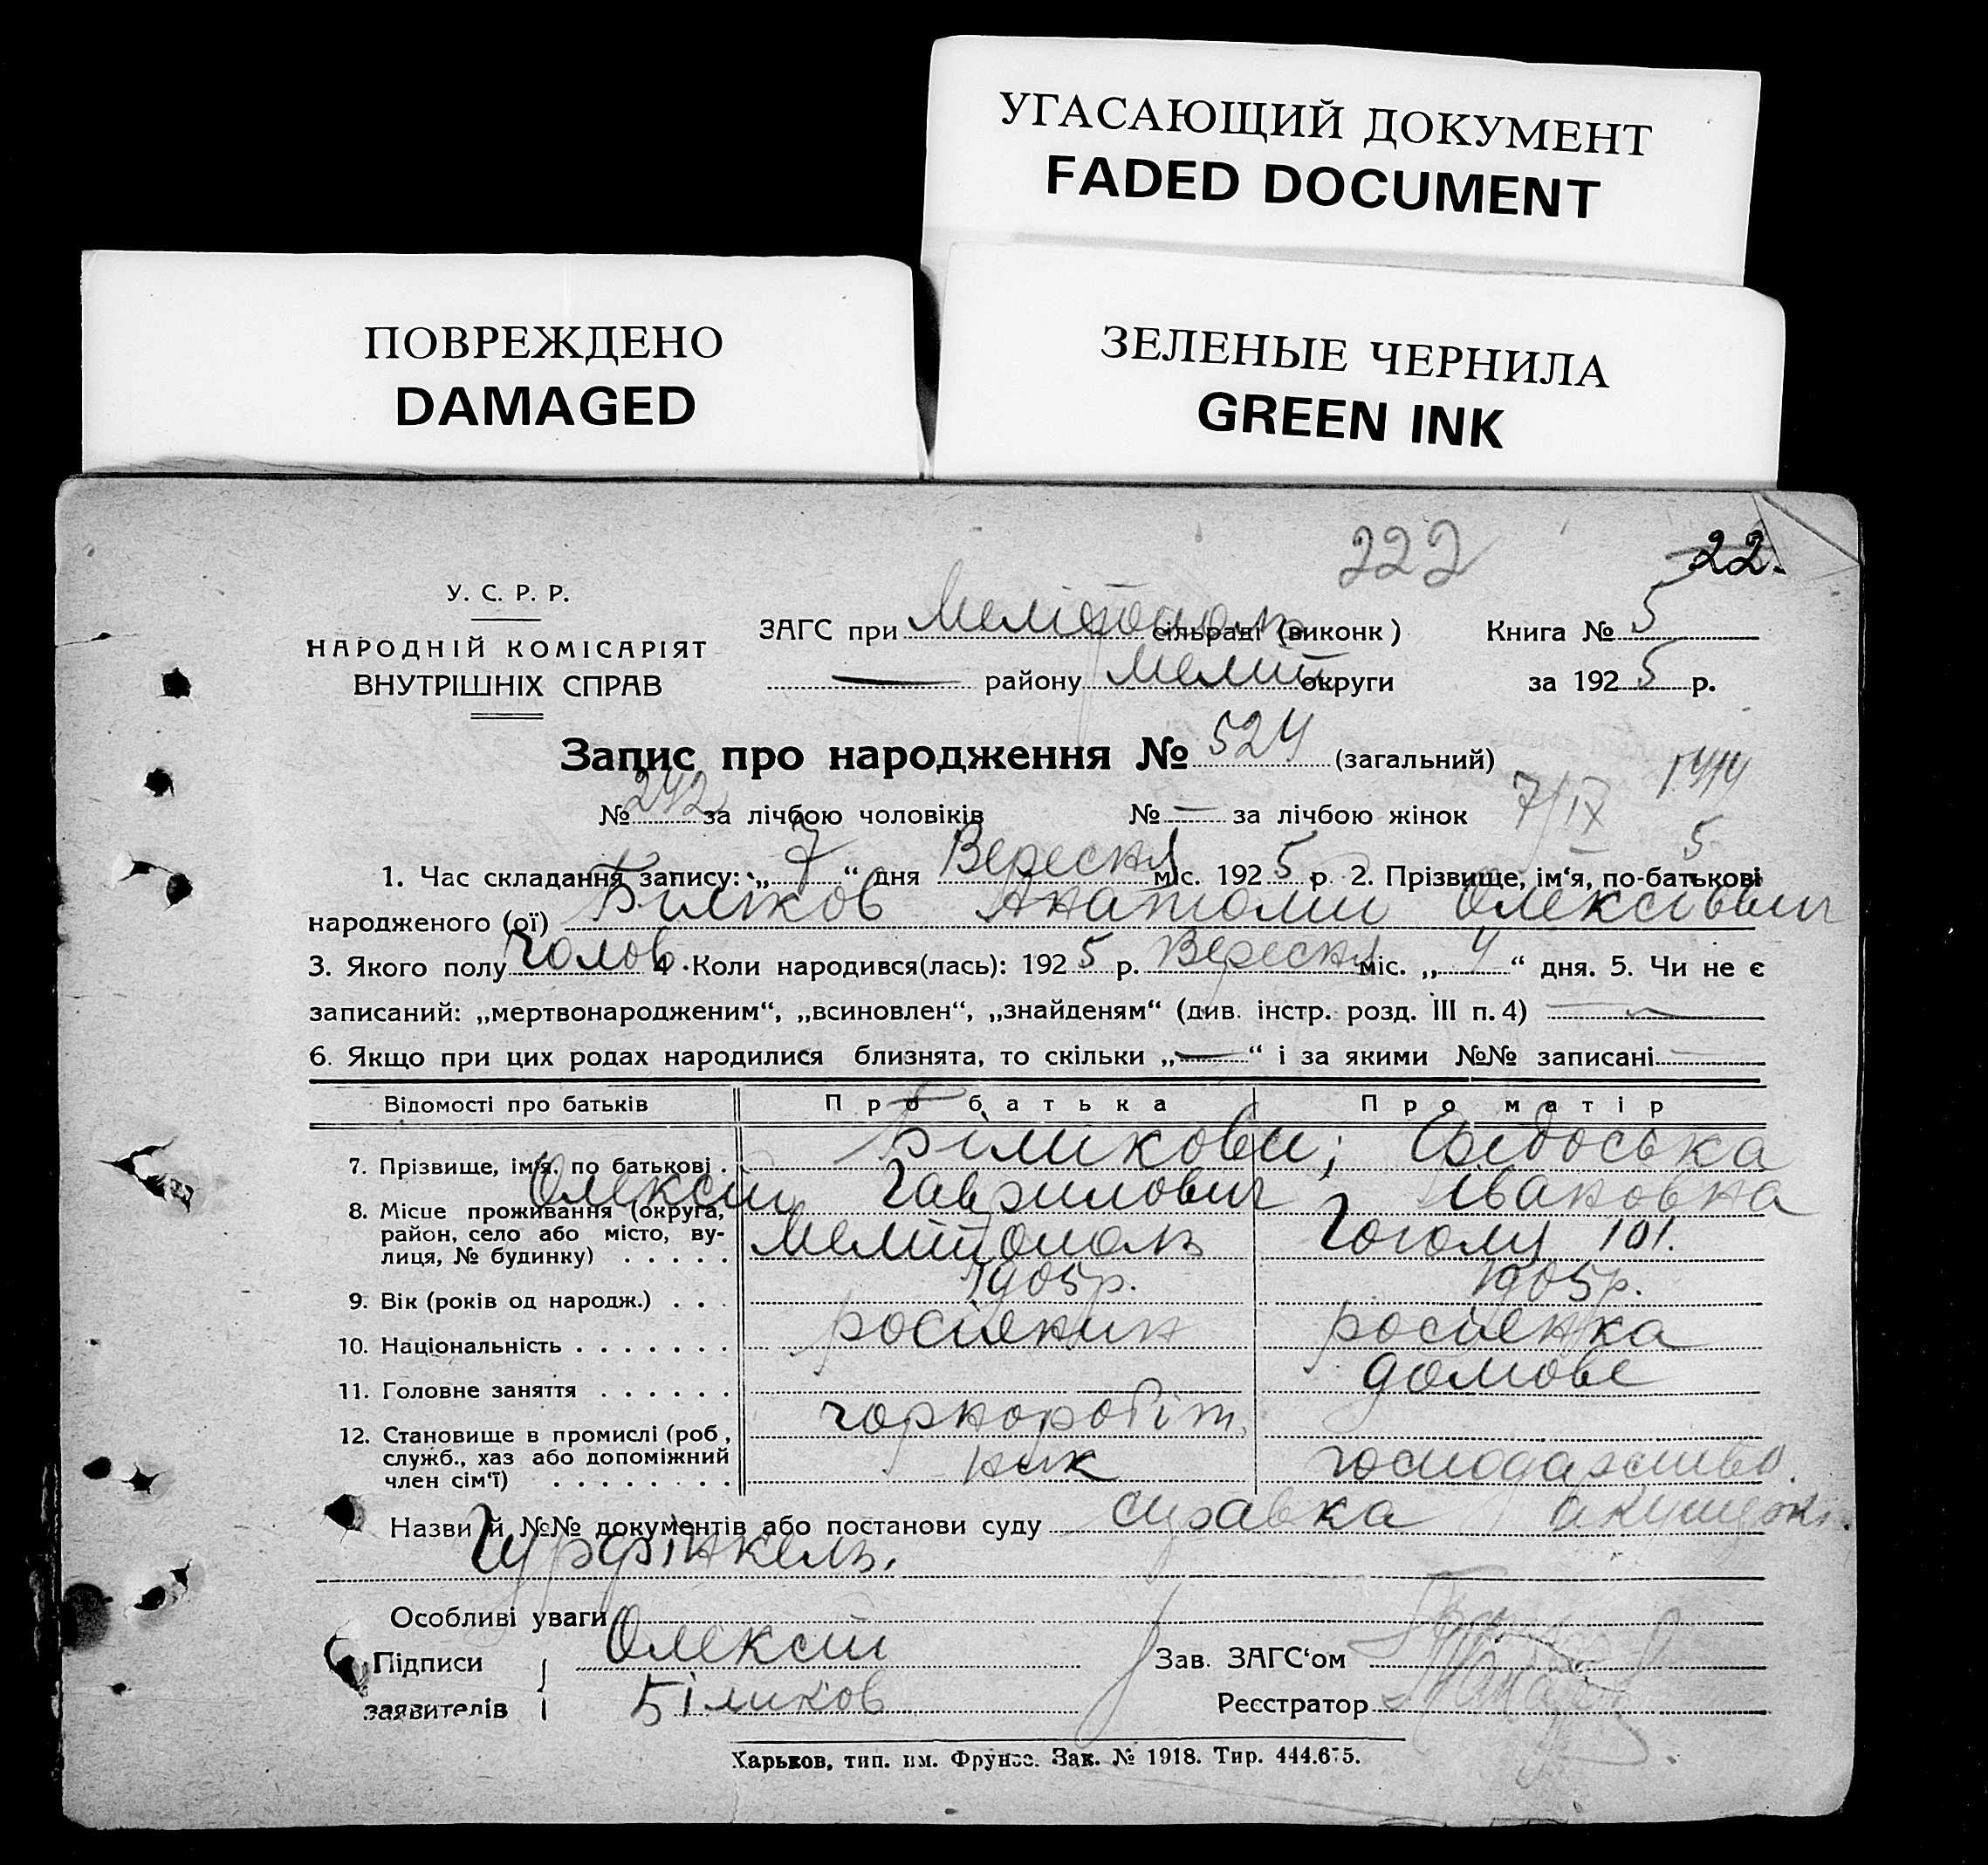 УГАСАЮЩИЙ ДОКУМЕНТ
FADED DOCUMENT
ПОВРЕЖДЕНО
DAMAGED
ЗЕЛЕНЫЕ ЧЕРНИЛА
GREEN INK
222
22.
У. С. Р. Р.
НАРОДНІЙ КОМІСАРІЯТ
ВНУТРІШНІХ СПРАВ
ЗАГС при Мелітополь сільраді (виконк) Книга № 5
— району Меліт округи за 1925 р.
Запис про народження № 524 (загальний)
№ 242 за лічбою чоловіків № — за лічбою жінок 7/IX
5
1. Час складання запису: „ 7 “ дня Вересня міс. 1925 р. 2. Прізвище, ім‘я, по-батькові
народженого (ої) Біліков Анатолій Олексієвич
3. Якого полу Чолов. 4. Коли народився(лась): 1925 р. Вересня міс. „ 4 “ дня. 5. Чи не є
записаний: „мертвонародженим“, „всиновлен“, „знайденям“ (див. інстр. розд. III п. 4) —
6. Якщо при цих родах народилися близнята, то скільки „—“ і за якими №№ записані —
Відомості про батьків Про батька Про матір
7. Прізвище, ім‘я, по батькові Білікови; Федоська
Олексій Гаврилович Івановна
8. Місце проживання (округа,
район, село або місто, ву-
лиця, № будинку) Мелітополь Гоголу 101.
9. Вік (років од народж.) 1905 р. 1905 р.
10. Національність росіянин росіянка
11. Головне заняття домове
чорноробіт
12. Становище в промислі (роб.,
служб., хаз або допоміжний
член сім‘ї) ник господарство.
Назви й №№ документів або постанови суду справка акушерки
Гурфінкель.
Особливі уваги
Підписи
заявителів
Олексій
Біликов
Зав. ЗАГС‘ом
Реєстратор
Харьков, тип. им. Фрунзе. Зак. № 1918. Тир. 444.675.